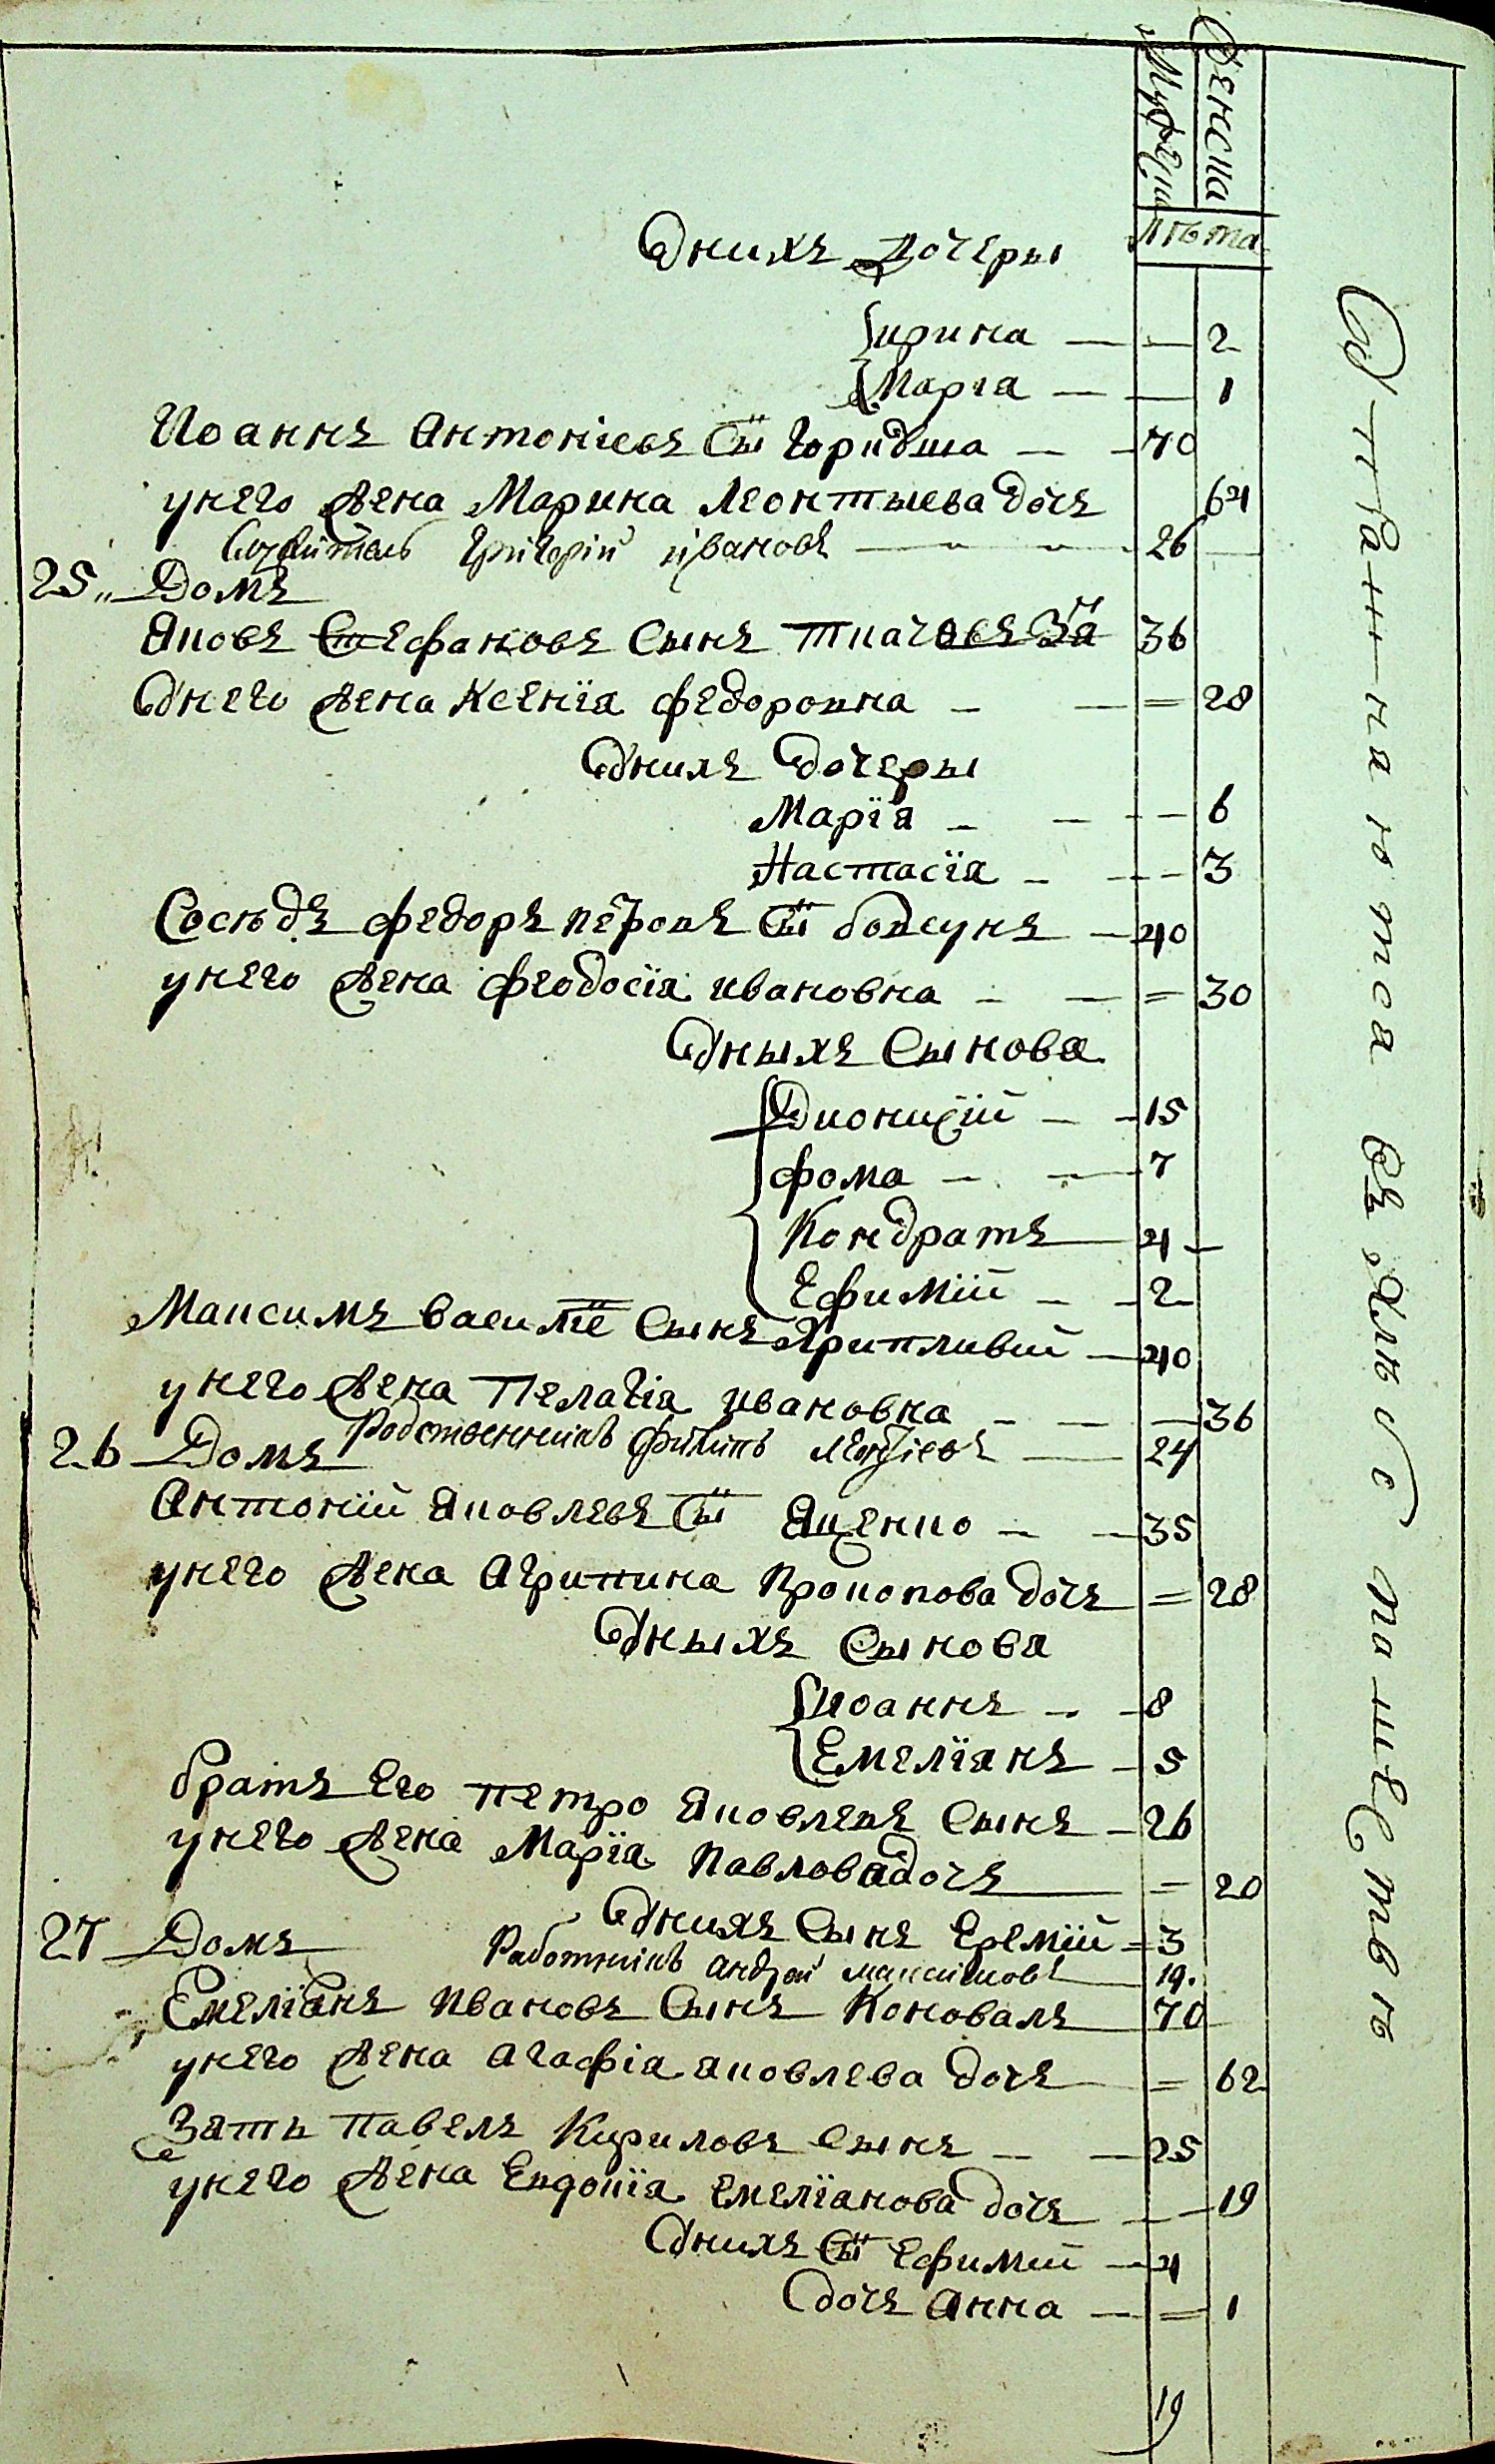 Мужеска
Женска
лѣта
Оных дочеры
ирина — — 2
Мариа — — 1
Иоаннъ Антоніевъ сы҃ горидша — 70
у него жена Марина Леонтыева дочъ 64
Служитель Григорій ивановъ — 26 —
25. Домъ
Яковъ Стефановъ сынъ ткачовъ зя 36
Онего жена Ксенїа федоровна — = 28
Онихъ дочеры
Марїа — — 6
Настасїа — — 3
Сосѣдъ федоръ петровъ сы҃ бовсунъ — 40
у него жена феодосїа ивановна — = 30
Оныхъ сынова
Дионисїй — 15
фома — 7
Кондратъ — 4 —
Ефимїй — 2
Максимъ васильї сынъ Хрипливїй — 40
у него жена Пелагїа ивановна — — 36
Родственникъ филипъ — 24
26 Домъ
Антонїй Яковлевъ сы҃ Яценко — 35
у него жена Агрипина Прокопова дочъ = 28
Оныхъ сынова
иоаннъ — 8
Емелїанъ — 5
братъ его петро Яковлевъ сынъ — 26
у него жена Марїа Павлова дочъ = 20
Онихъ сынъ Еремїй = 3
Работникъ андрей максимовъ — 19.
27 Домъ
Емелїанъ Ивановъ сынъ Коновалъ 70
у него жена Агафїа яковлева дочъ = 62
Зять павелъ Кириловъ сынъ — 25
у него жена Евдокїа Емелїанова дочъ — 19
Онихъ сы҃ Ефимїй — 4
дочъ анна — = 1
19